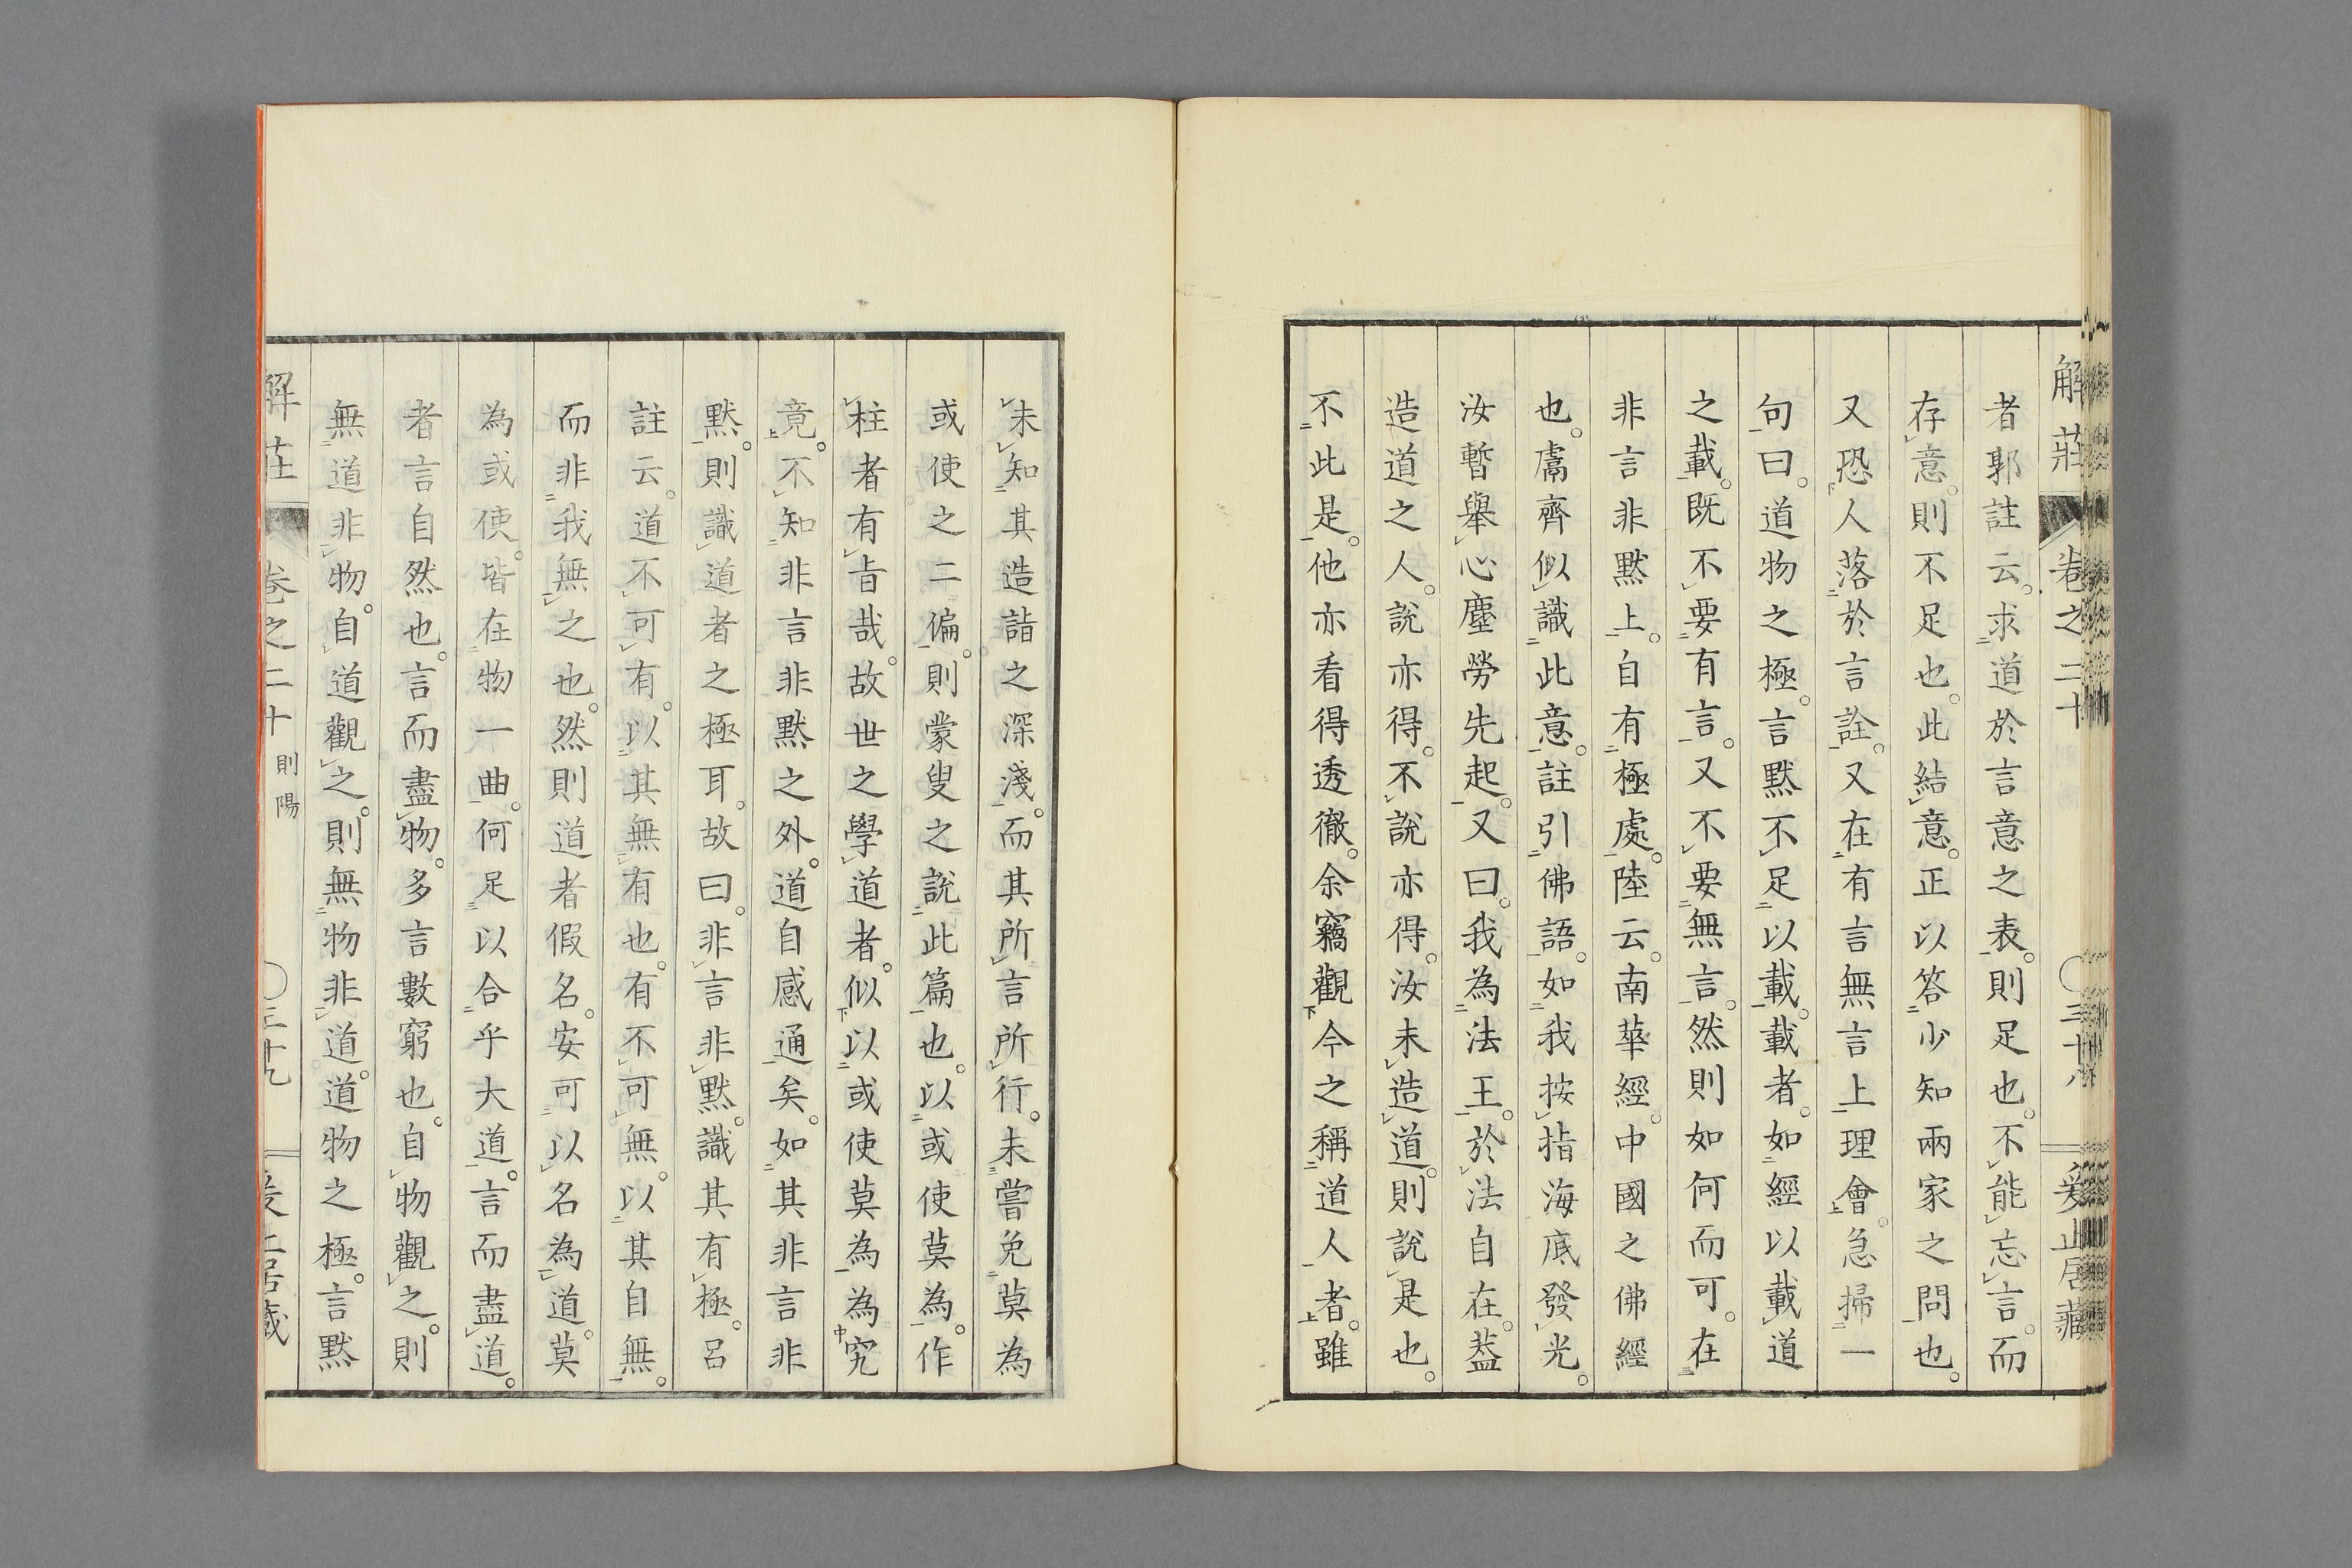 解莊 卷之二十 ○三十八 爰止居藏
者郭註云。求道於言意之表。則足也。不能忘言。而
存意。則不足也。此結意。正以答少知兩家之問也。
又恐人落於言詮。又在有言無言上理會。急掃一
句曰。道物之極。言默不足以載。載者。如經以載道
之載。既不要有言。又不要無言。然則如何而可。在
非言非默上。自有極處。陸云。南華經。中國之佛經
也。鬳齊似識此意。註引佛語。如我按指海底發光。
汝暫舉心塵勞先起。又曰。我為法王。於法自在。葢
造道之人。說亦得。不說亦得。汝未造道。則說是也。
不此是。他亦看得透徹。余竊觀今之稱道人者。雖
未知其造詣之深淺。而其所言所行。未嘗免莫為
或使之二偏。則蒙叟之說此篇也。以或使莫為。作
柱者有㫖哉。故世之學道者。似以或使莫為為究
竟。不知非言非默之外。道自感通矣。如其非言非
默。則識道者之極耳。故曰。非言非默。識其有極。呂
註云。道不可有。以其無有也。有不可無。以其自無。
而非我無之也。然則道者假名。安可以名為道。莫
為或使。皆在物一曲。何足以合乎大道。言而盡道。
者言自然也。言而盡物。多言數窮也。自物觀之。則
無道非物。自道觀之。則無物非道。道物之極。言默
解莊 卷之二十 則陽 ○三十九 爰止居藏